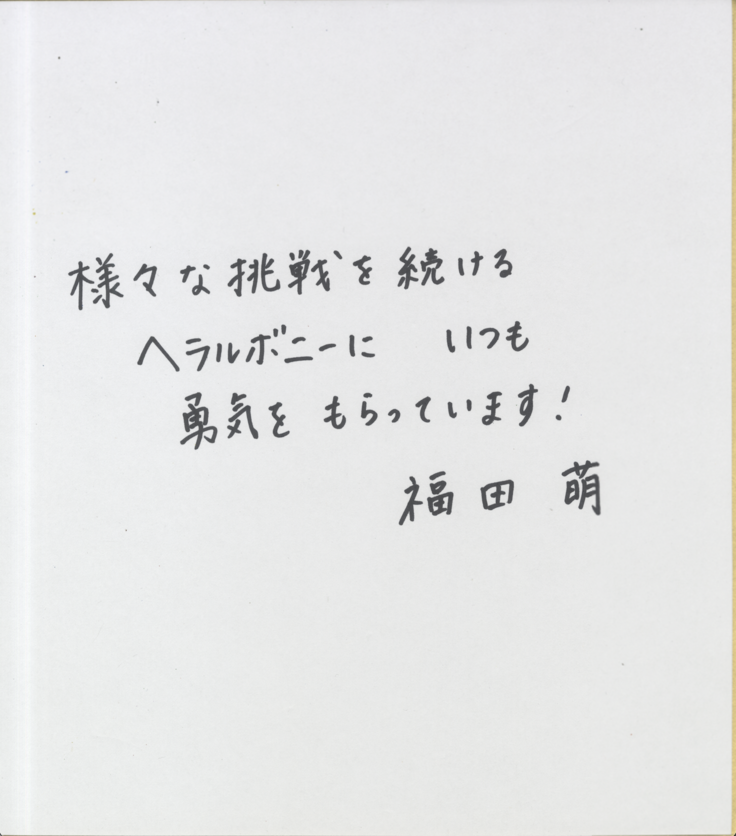 様々な挑戦を続ける
ヘラルボニーに いつも
勇気を もらっています!
福田 萌